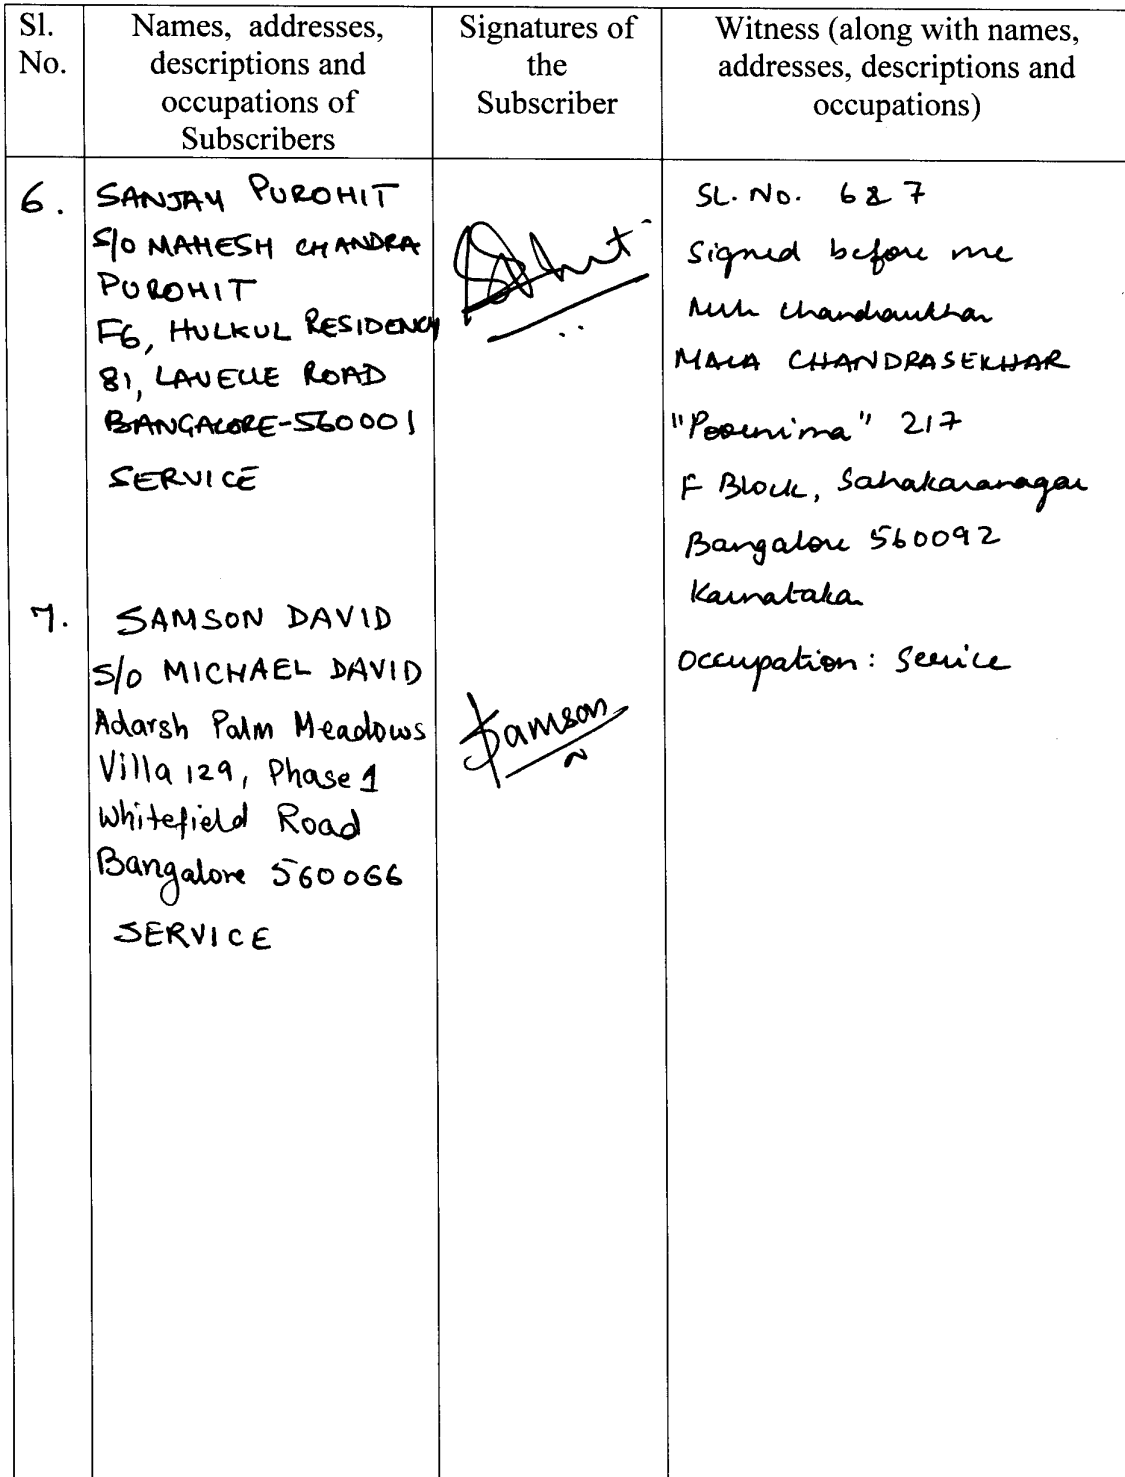 Sl. No.
Names, addresses, descriptions and occupations of Subscribers
Signatures of the Subscriber
Witness (along with names, addresses, descriptions and occupations)
6.
SANJAY PUROHIT
S/O MAHESH CHANDRA
PUROHIT
F6, HULKUL RESIDENCY
81, LAVELLE ROAD
BANGALORE-560001
SERVICE
SL. No. 6 & 7
Signed before me
MALA CHANDRASEKHAR
"Poornima" 217
F Block, Sahakaranagar
Bangalore 560092
Karnataka
Occupation: Service
7.
SAMSON DAVID
S/O MICHAEL DAVID
Adarsh Palm Meadows
Villa 129, Phase 1
Whitefield Road
Bangalore 560066
SERVICE
Samson